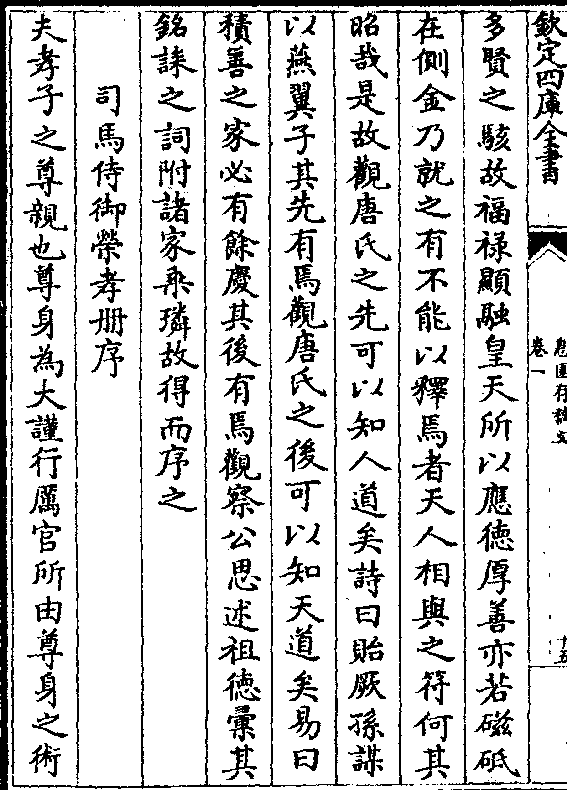 欽定四庫全書
息園存稿文
卷一
十五
多賢之駭故福禄顯融皇天所以應德厚善亦若磁砥
在側金乃就之有不能以釋焉者天人相與之符何其
昭哉是故觀唐氏之先可以知人道矣詩曰貽厥孫謀
以燕翼子其先有焉觀唐氏之後可以知天道矣易曰
積善之家必有餘慶其後有焉觀察公思述祖德彙其
銘誄之詞附諸家乘璘故得而序之
司馬侍御榮孝册序
夫孝子之尊親也尊身為大謹行厲官所由尊身之術